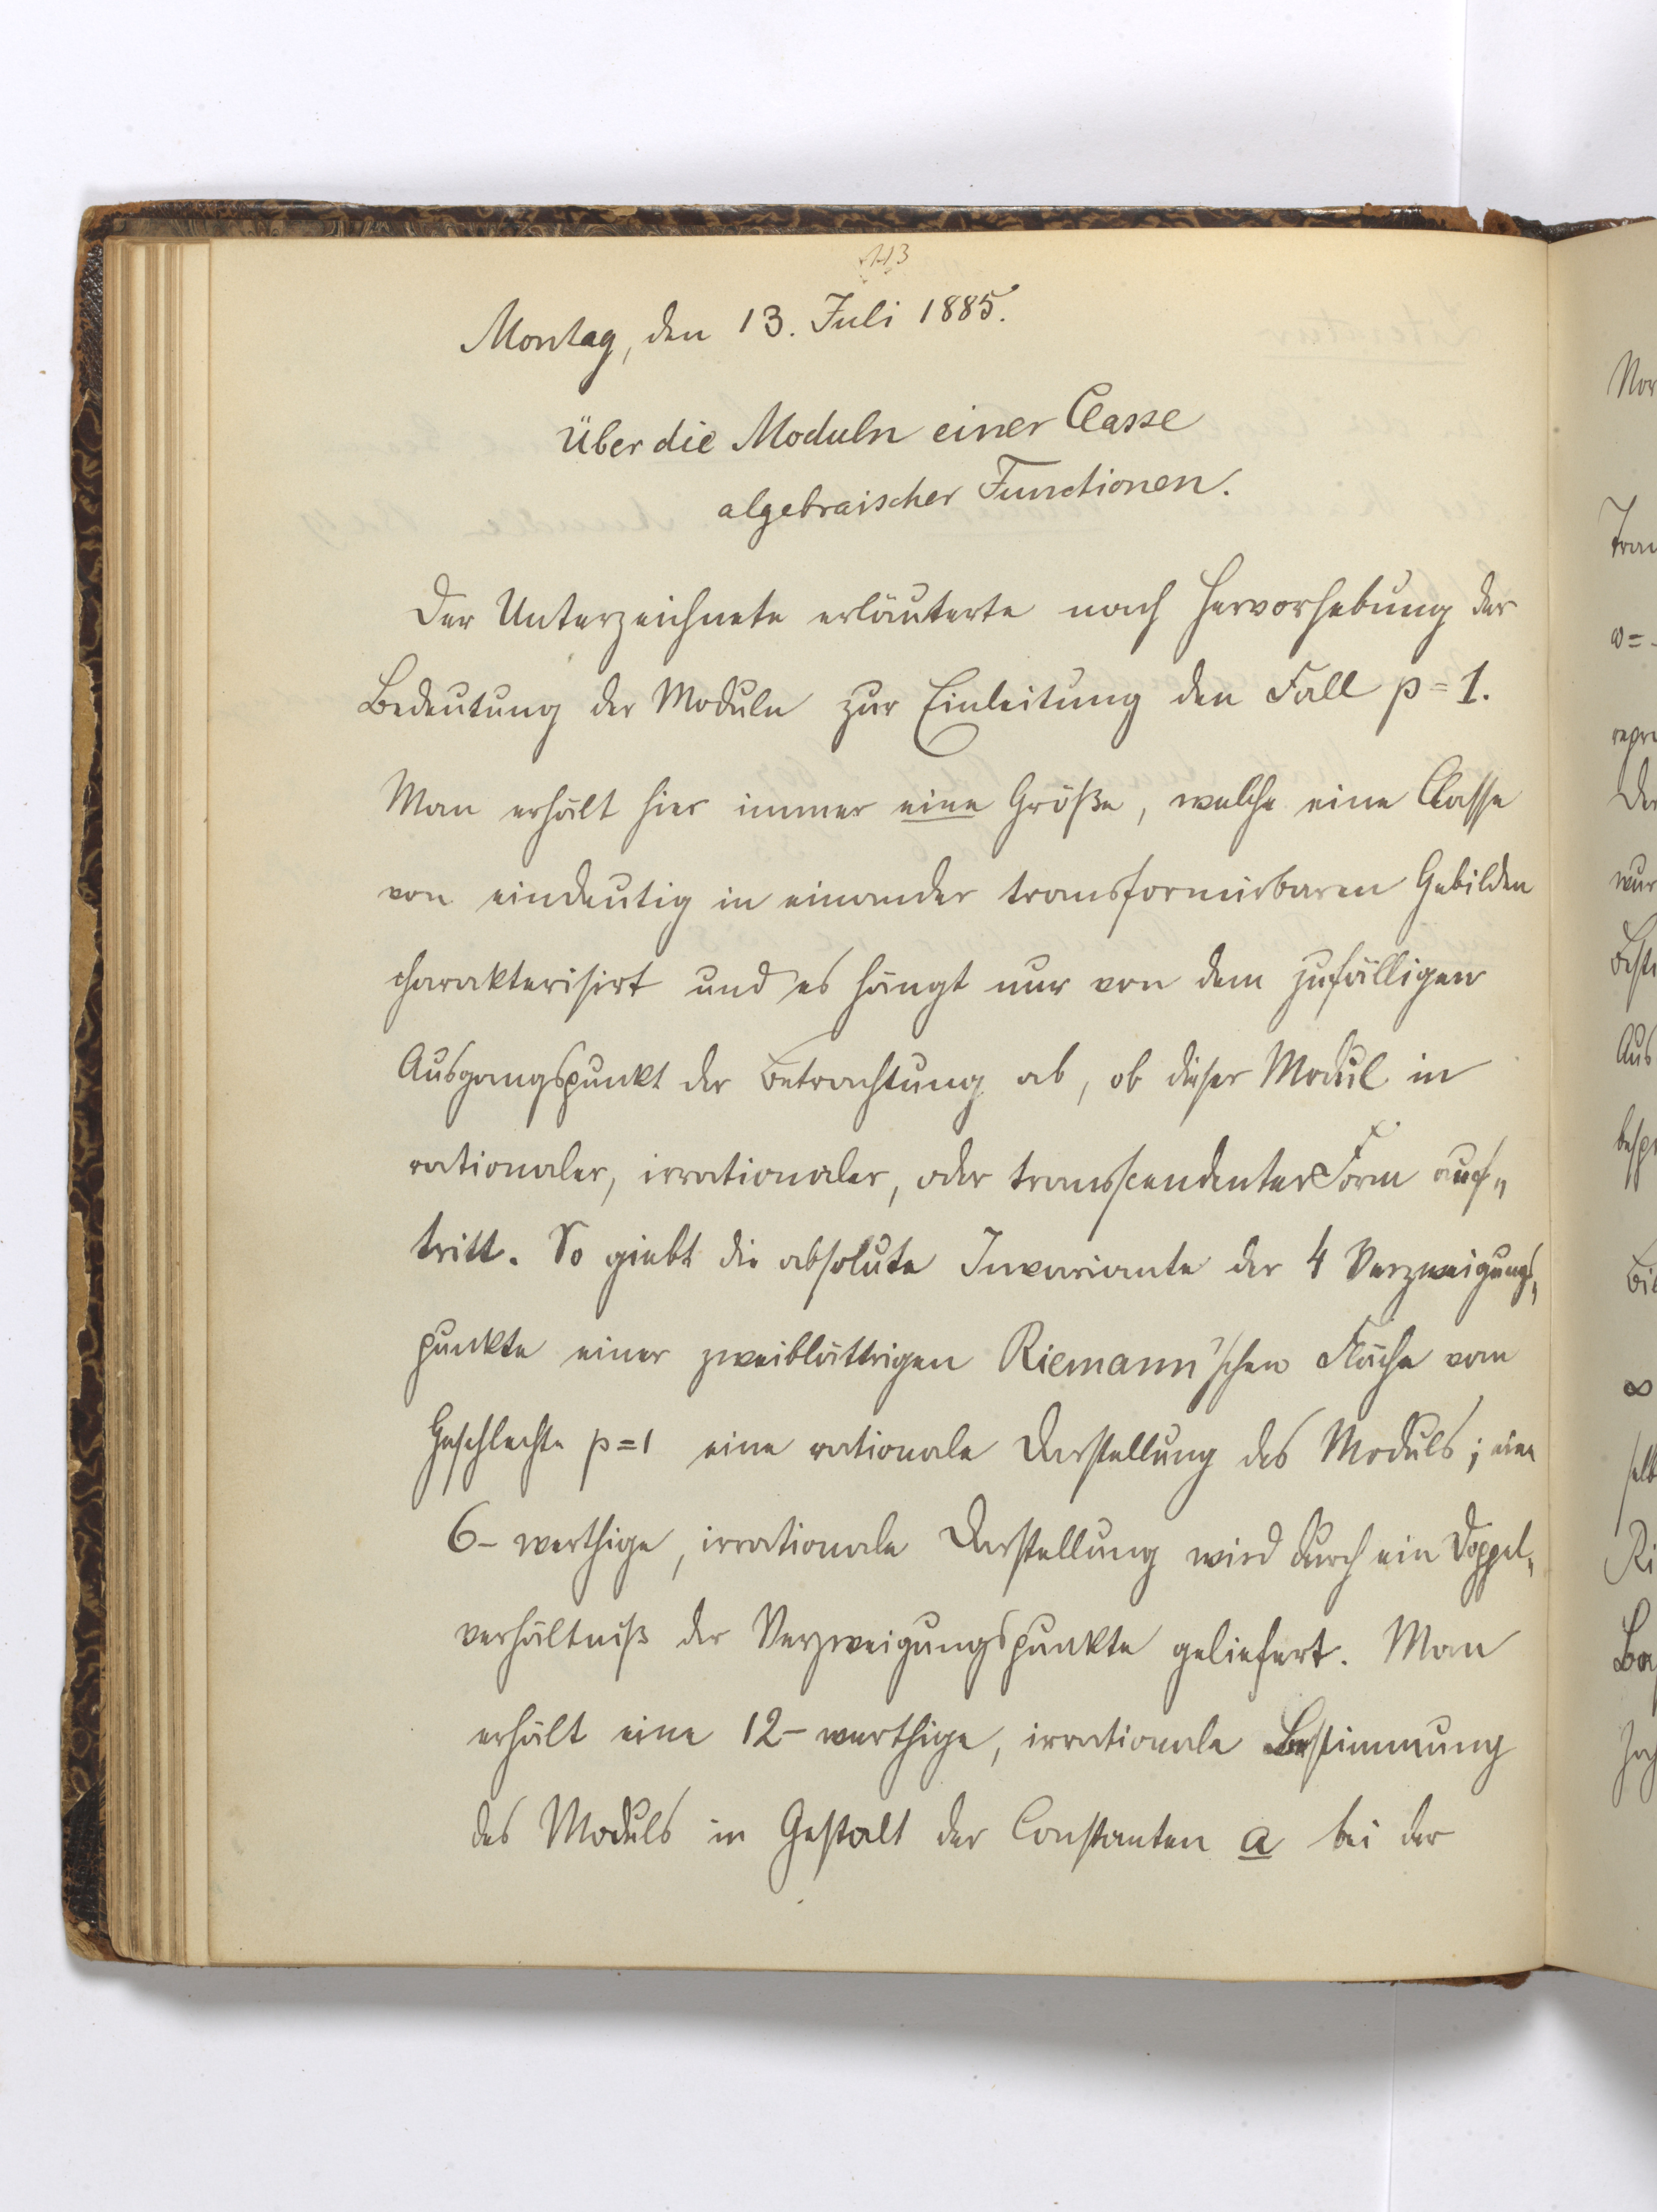 113
Montag, den 13. Juli 1885.
Über die Moduln einer Classe
algebraischer Functionen.
Der Unterzeichnete erläuterte nach Hervorhebung der
Bedeutung der Moduln zur Einleitung den Fall p=1.
Man erhält hier immer eine Größe, welche eine Classe
von eindeutig in einander transformirbaren Gebilden
charakterisirt und es hängt nur von dem zufälligen
Ausgangspunkt der Betrachtung ab, ob dieser Modul in
rationaler, irrationaler, oder transscendenter Form auf„
tritt. So giebt die absolute Invariante der 4 Verzweigungs„
punkte einer zweiblättrigen Riemann'schen Fläche vom
Geschlechte p=1 eine rationale Darstellung des Moduls; eine
6-werthige, irrationale Darstellung wird durch ein Doppel„
verhältniß der Verzweigungspunkte geliefert. Man
erhält eine 12-werthige, irrationale Bestimmung
des Moduls in Gestalt der Constanten a bei der
Nor
Tran
w=
repr
Der
wur
Besti
Aus
besp
∞
selb
Ri